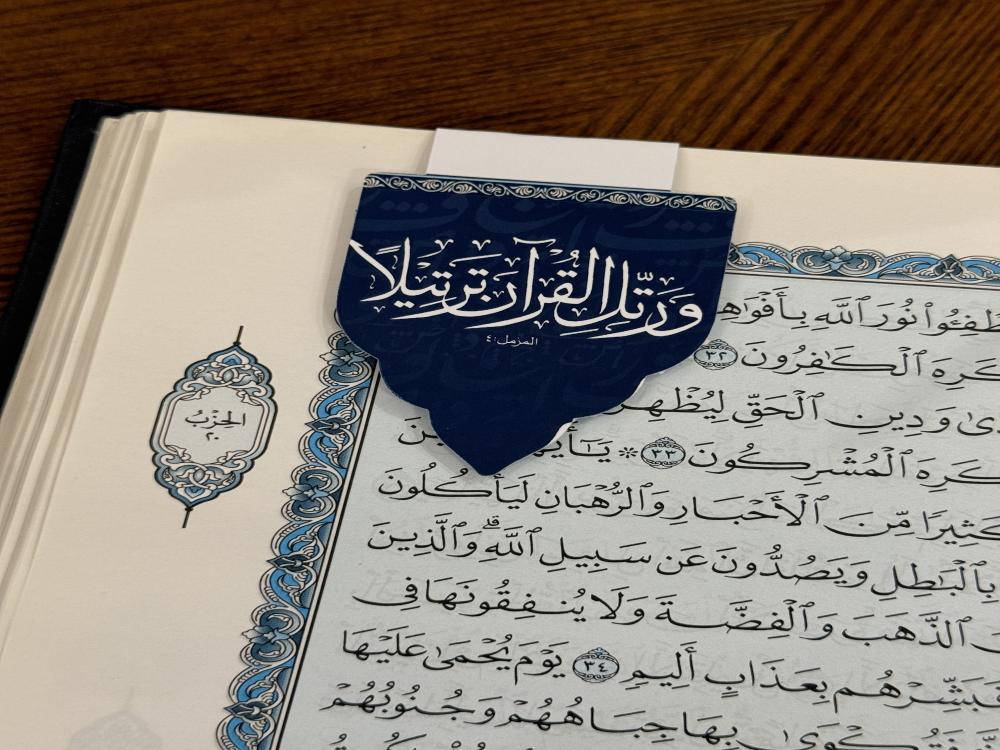 وَرَتِّلِ الْقُرْآنَ تَرْتِيلًا
المزمل:٤
الحِزْبُ
٢٠
نُورَ ٱللَّهِ بِأَفْوَٰهِ
ٱلْكَٰفِرُونَ ٣٢
وَدِينِ ٱلْحَقِّ لِيُظْهِرَ
كَرِهَ ٱلْمُشْرِكُونَ ٣٣ ۞ يَٰٓأَيُّهَا
كَثِيرًا مِّنَ ٱلْأَحْبَارِ وَٱلرُّهْبَانِ لَيَأْكُلُونَ
بِٱلْبَٰطِلِ وَيَصُدُّونَ عَن سَبِيلِ ٱللَّهِۗ وَٱلَّذِينَ
ٱلذَّهَبَ وَٱلْفِضَّةَ وَلَا يُنفِقُونَهَا فِي
فَبَشِّرْهُم بِعَذَابٍ أَلِيمٍ ٣٤ يَوْمَ يُحْمَىٰ عَلَيْهَا
بِهَا جِبَاهُهُمْ وَجُنُوبُهُمْ